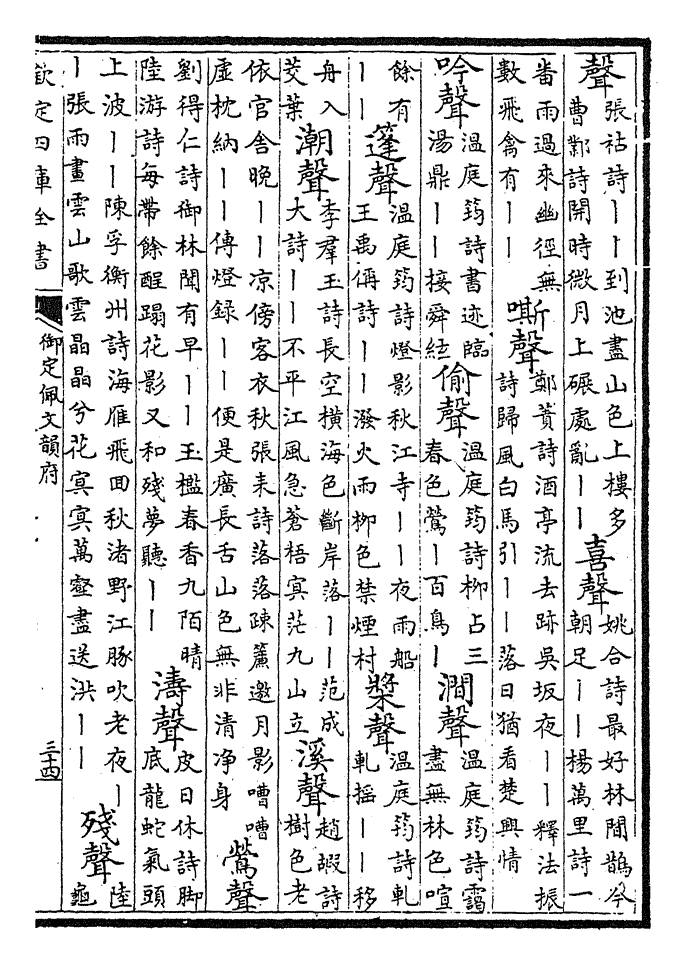 聲 張祜詩丨丨到池盡山色上樓多
曹鄴詩開時微月上碾處亂丨丨
喜聲 姚合詩最好林間鵲今
朝足丨丨楊萬里詩一
畨雨過來幽徑無
數飛禽有丨丨
嘶聲 鄭蕡詩酒亭流去跡吳坂夜丨丨釋法振
詩歸風白馬引丨丨落日猶看楚興情
吟聲 温庭筠詩書迹臨
湯鼎丨丨接舜絃
偷聲 温庭筠詩柳占三
春色鶯丨百鳥丨
澗聲 温庭筠詩靄
盡無林色喧
餘有
丨丨
篷聲 温庭筠詩燈影秋江寺丨丨夜雨船
王禹偁詩丨丨潑火雨柳色禁煙村
槳聲 温庭筠詩軋
軋摇丨丨移
舟入
茭葉
潮聲 李羣玉詩長空横海色斷岸落丨丨范成
大詩丨丨不平江風急蒼梧㝠茫九山立
溪聲 趙嘏詩
樹色老
依官舍晚丨丨凉傍客衣秋張耒詩落落疎簾邀月影嘈嘈
虚枕納丨丨傳燈録丨丨便是廣長舌山色無非清浄身
鶯聲
劉得仁詩御林聞有早丨丨玉檻春香九陌晴
陸游詩每帶餘酲蹋花影又和殘夢聽丨丨
濤聲 皮日休詩脚
底龍蛇氣頭
上波丨丨陳孚衡州詩海雁飛回秋渚野江豚吹老夜丨
丨張雨畫雲山歌雲晶晶兮花㝠㝠萬壑盡送洪丨丨
殘聲 陸
龜
欽定四庫全書
御定佩文韻府
三十四